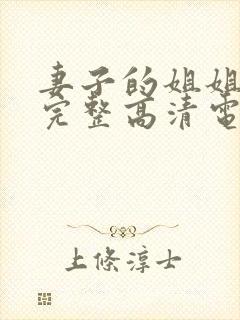 妻子的姐姐
完整高清電
上條淳士